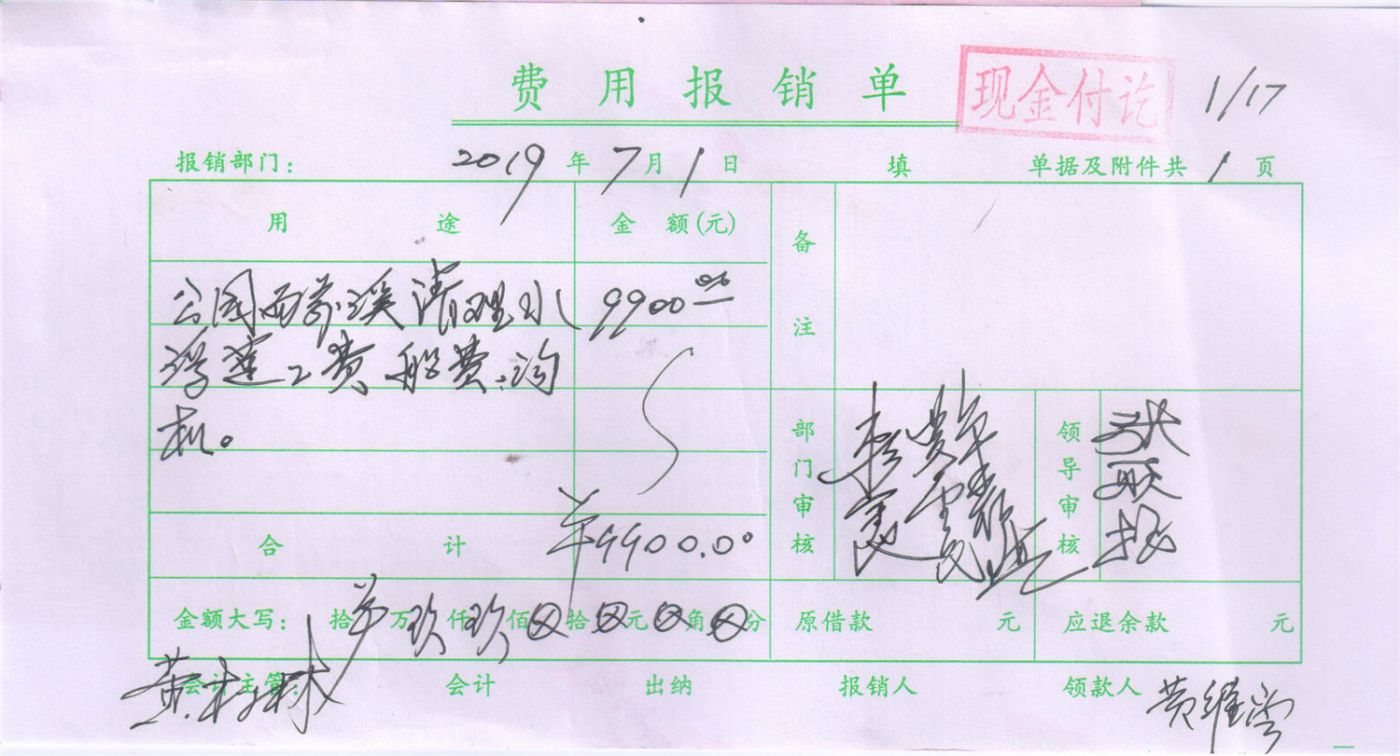 费用报销单 现金付讫 1/17
报销部门: 2019年7月1日 填 单据及附件共1页
用途 金额(元) 备注
公园西 溪清理水 9900 00
浮莲工费船费:沟
机。
部门审核 领导审核 张
合计 ¥9900.00
金额大写: 拾¥万玖仟玖佰⊗拾⊗元⊗角⊗分 原借款 元 应退余款 元
会计主管: 黄 林 会计 出纳 报销人 领款人 黄继